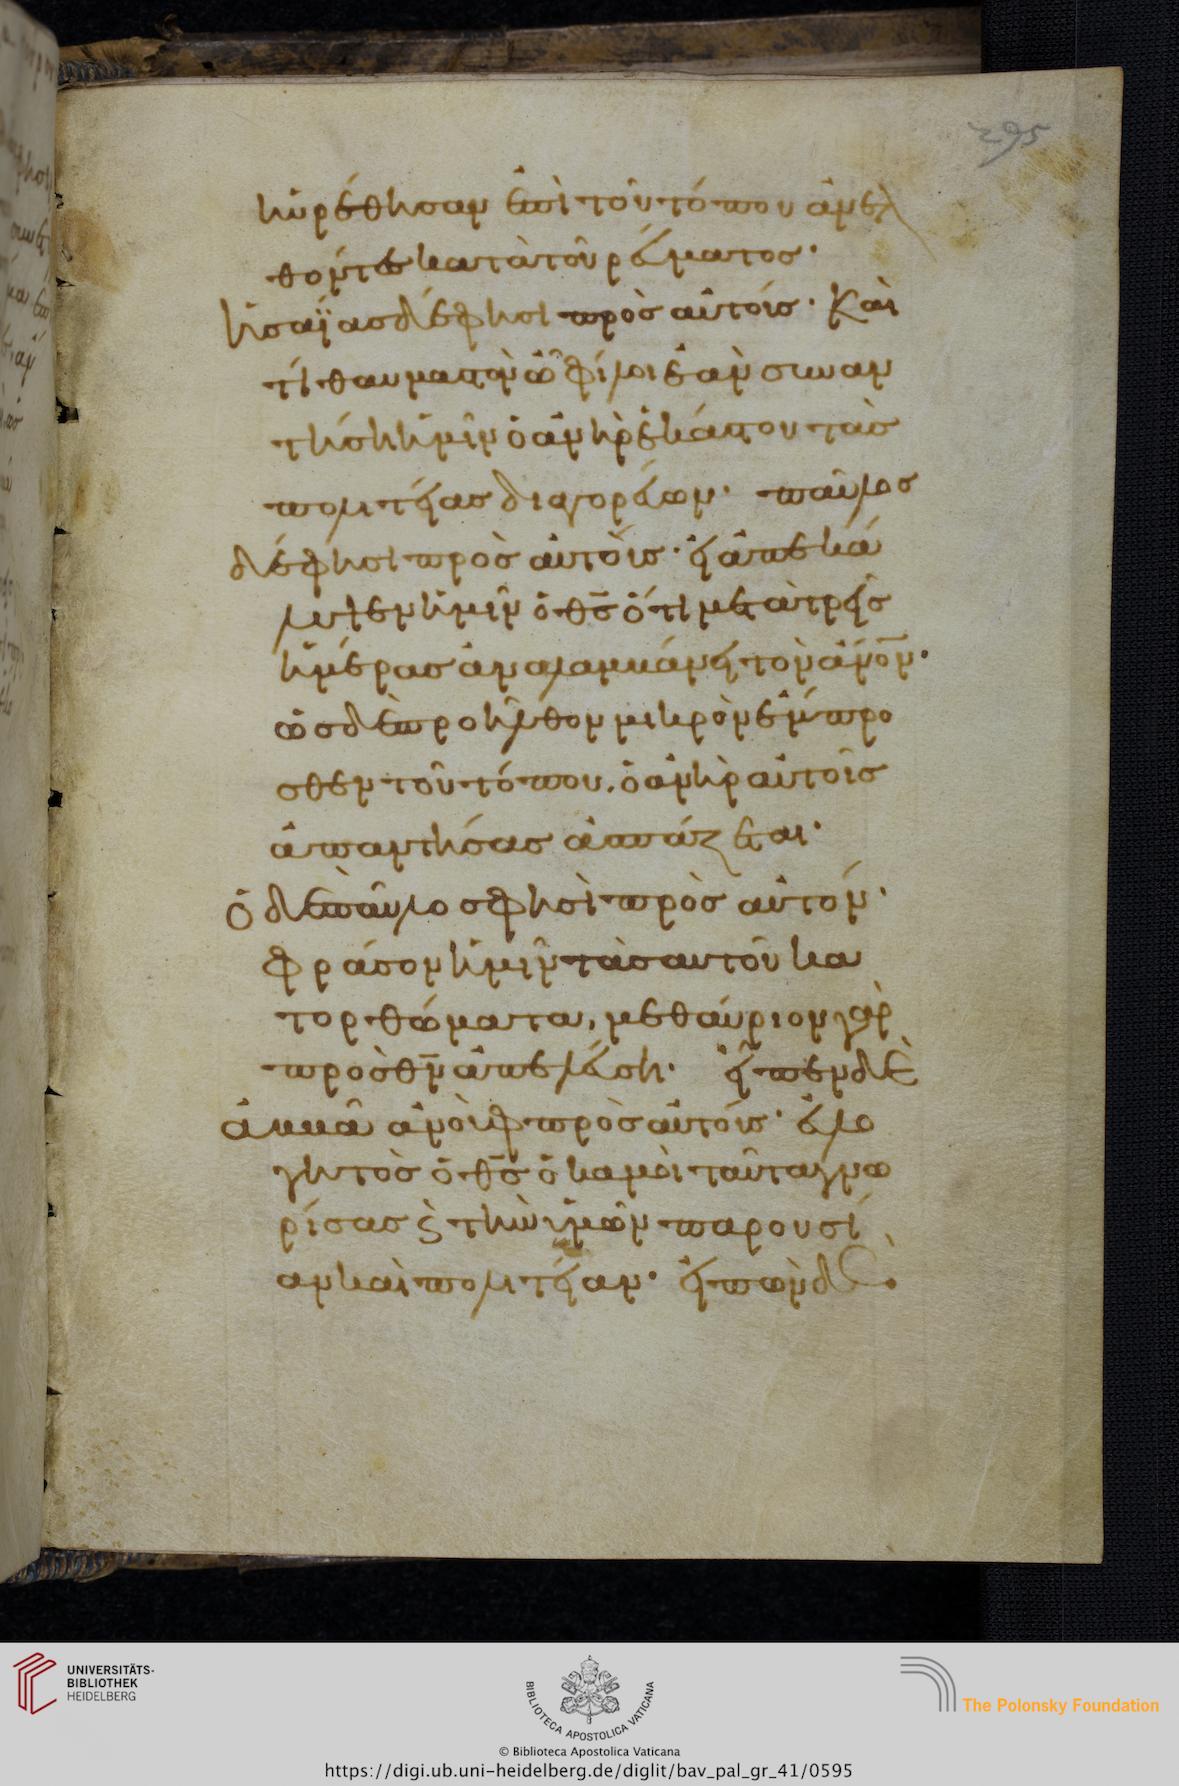 295
ηὑρέθησαν ἐπὶ τοῦ τόπου ἀνελ
θόντες κατὰ τοῦ ῥεύματος·
Ἠσαΐας δέ φησι πρὸς αὐτούς· Καὶ
τί θαυμαστὸν ὦ φίλοι ἐὰν συναν
τήσῃ ἡμῖν ὁ ἀνὴρ ἑκάστου τὰς
πολιτείας διαγορεύων· παῦλος
δέ φησι πρὸς αὐτούς· εἰ ἀπεκά
λυψεν ἡμῖν ὁ θς ὅτι μετὰ τρεῖς
ἡμέρας ἀναλαμβάνει τὸν ἄνον·
ὡς δὲ προῆλθον μικρὸν ἔμπρο
σθεν τοῦ τόπου, ὁ ἀνὴρ αὐτοῖς
ἀπαντήσας ἀσπάζεται·
ὁ δὲ παῦλός φησὶ πρὸς αὐτόν·
φράσον ἡμῖν τὰ σαυτοῦ κα
τορθώματα, μεθαύριον γὰρ
πρὸς θν ἀπελεύσῃ· εἶπεν δὲ
ἀββᾶ ἀνοὺφ πρὸς αὐτούς· εὐλο
γητὸς ὁ θς ὁ κἀμοὶ ταῦτα γνω
ρίσας καὶ τὴν ὑμῶν παρουσί
αν καὶ πολιτείαν· εἰπὼν δὲ
UNIVERSITÄTS-
BIBLIOTHEK
HEIDELBERG
BIBLIOTECA APOSTOLICA VATICANA
The Polonsky Foundation
© Biblioteca Apostolica Vaticana
https://digi.ub.uni-heidelberg.de/diglit/bav_pal_gr_41/0595